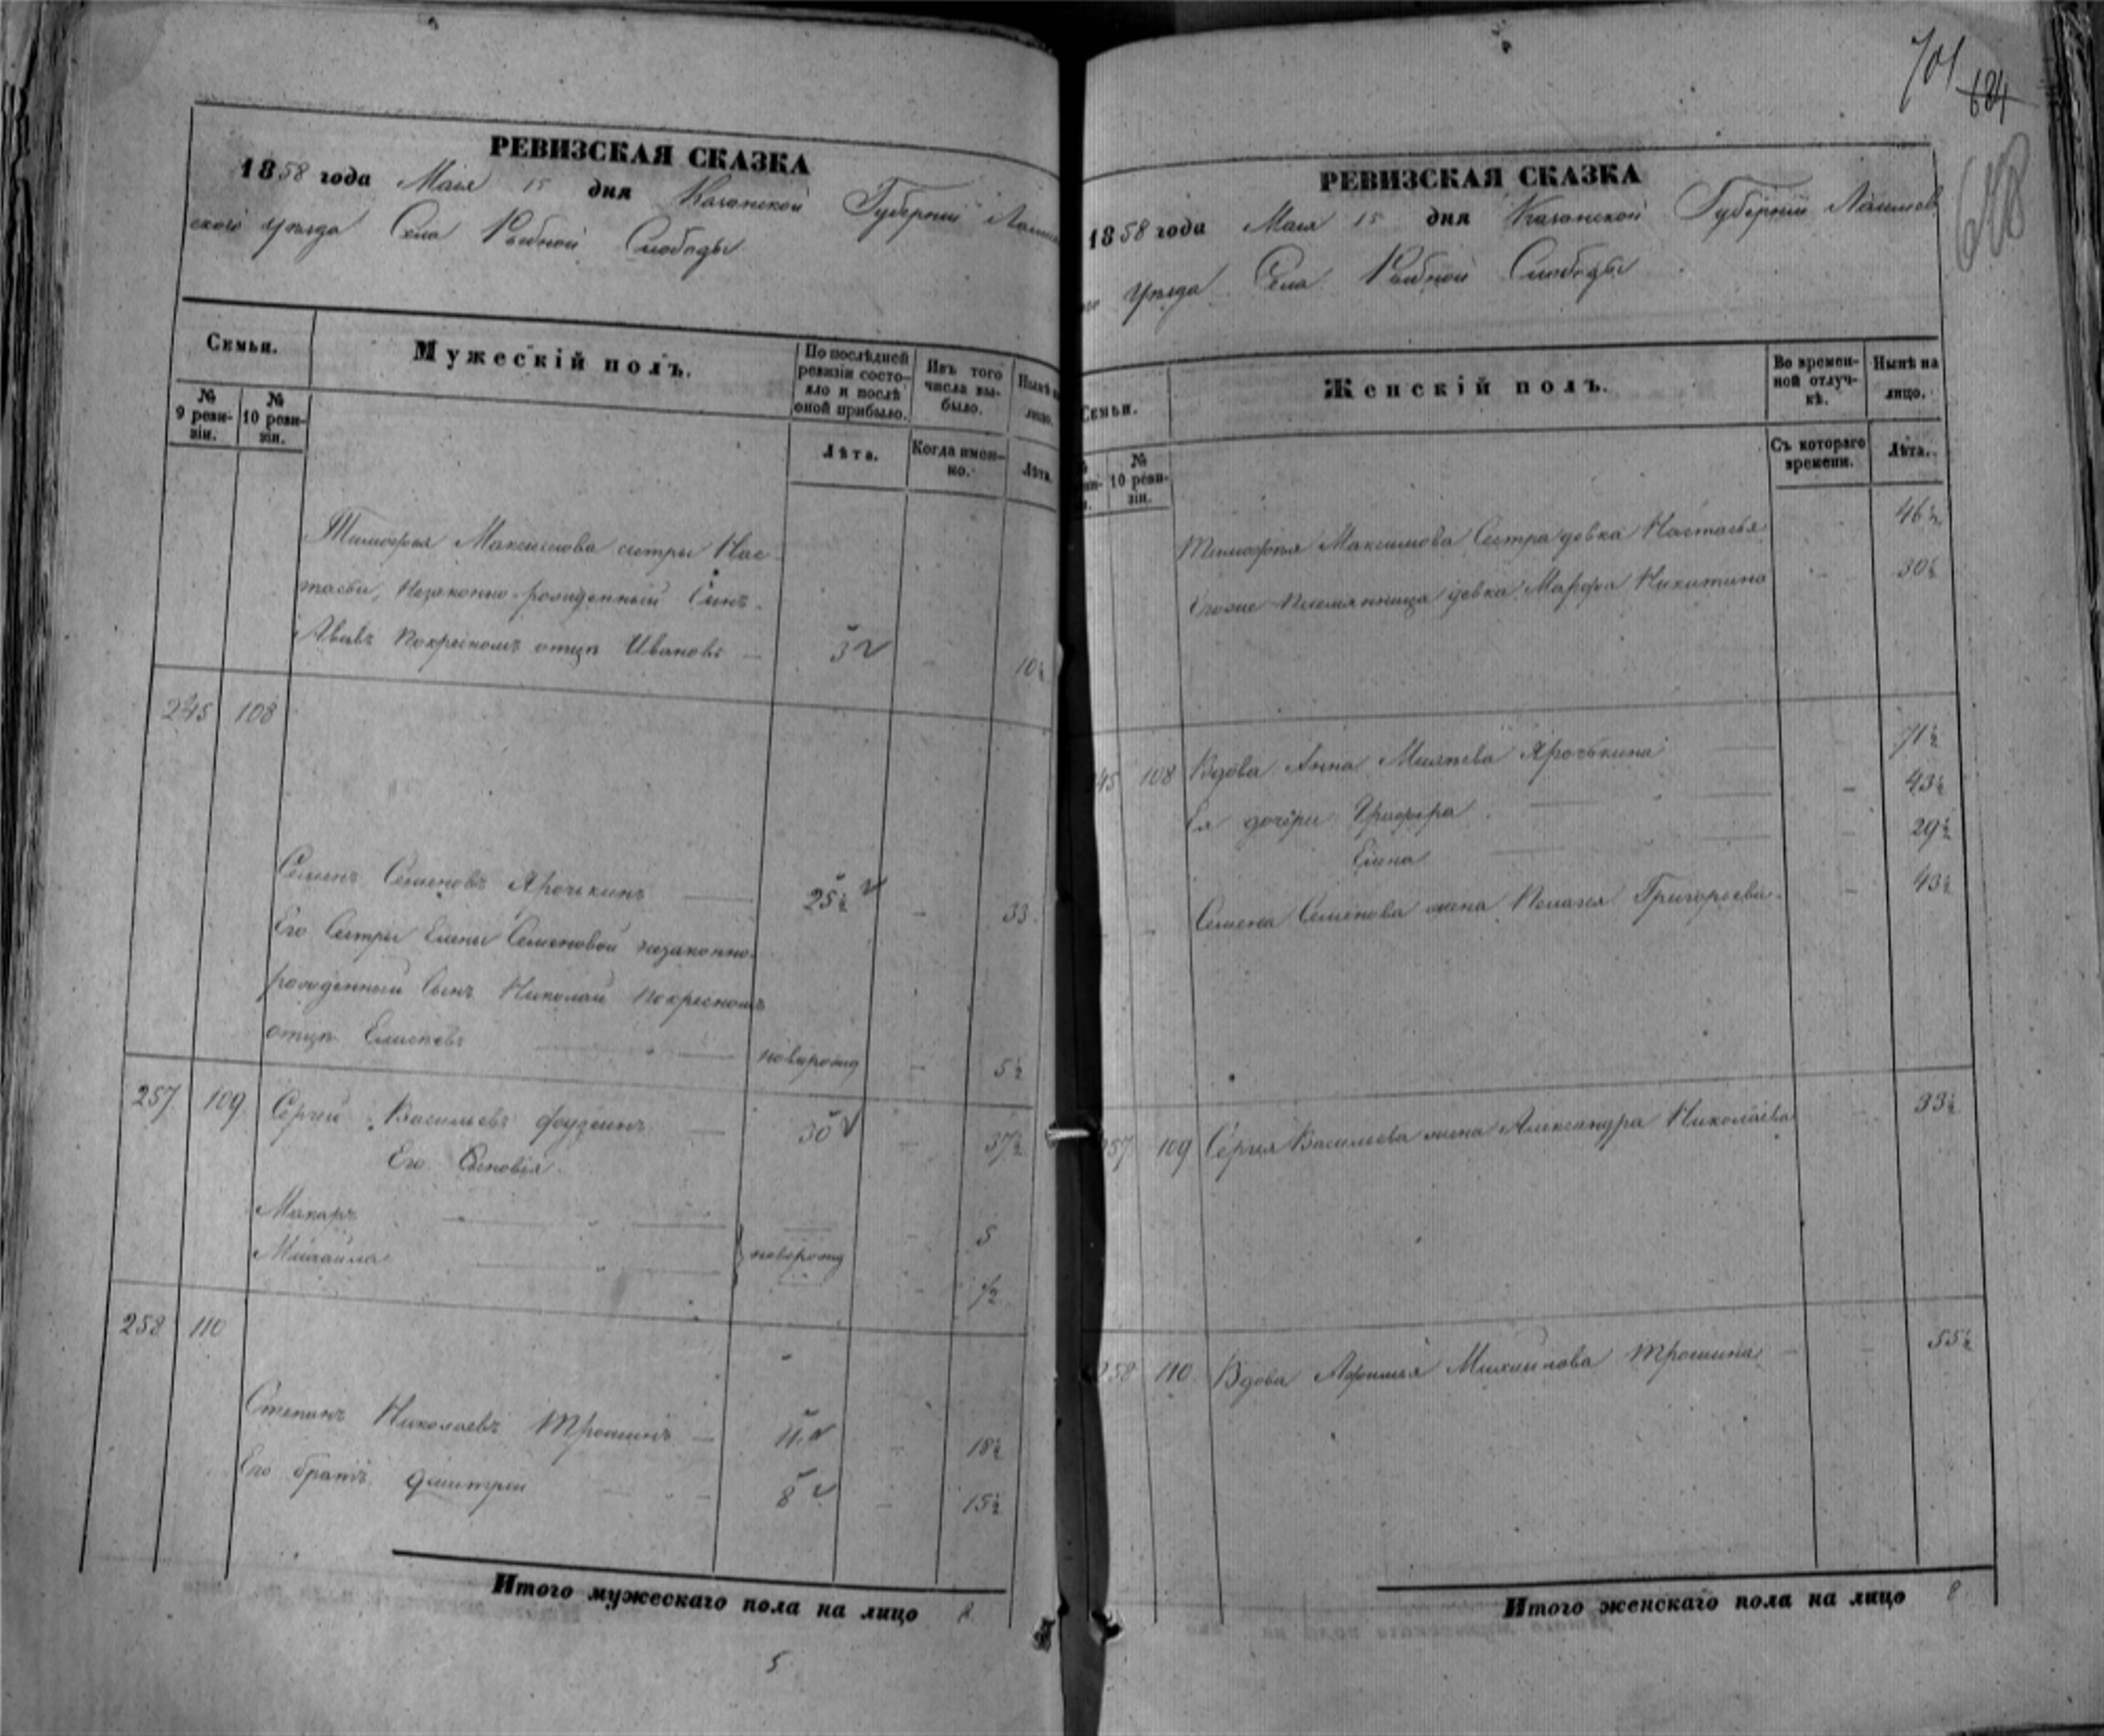 РЕВИЗСКАЯ СКАЗКА
1858 года Мая 15 дня Казанской Губернии
скаго уезда Села Рыбной Слободы
Семьи.
Мужескій полъ.
По послѣдней ревизіи состояло и послѣ оной прибыло.
Изъ того числа выбыло.
Нынѣ
лицо.
№ 9 ревизіи.
№ 10 ревизіи.
Лѣта.
Когда именно.
Лѣта.
Тимофея Максимова сестры Нас-
тасьи, Незаконно-рожденный Сынъ
покрестномъ отцѣ Ивановъ — 3 10½
245 108
Семенъ Семеновъ Ярочькинъ — 25½ — 33
Его Сестры Елены Семеновой незаконно-
рожденный Сынъ Николай покрестномъ
отцѣ Елисѣевъ — новорожд — 5½
257 109 Сергей Васильевъ — 30 — 37½
Его Сыновья
Макаръ — 5
Михайла новорожд — ½
258 110
Степанъ Николаевъ Трошинъ — 11 — 18½
Его братъ Дмитрей — 8 — 15½
Итого мужескаго пола на лицо 8
5
701
684
648
РЕВИЗСКАЯ СКАЗКА
1858 года Мая 15 дня Казанской Губернии Лаишев
го Уѣзда Села Рыбной Слободы
Семьи.
Женскій полъ.
Во временной отлучкѣ.
Нынѣ на лицо.
№ 10 ревизіи.
Съ котораго времени.
Лѣта.
Тимофея Максимова Сестра девка Настасья 46½
Егоже Племянница девка Марфа Никитина 30½
45 108 Вдова Анна Ярочькина 71½
Ея дочери — 43½
Елена — 29½
Семена Семенова жена Пелагея Григорьева — 43½
257 109 Сергея Васильева жена Александра Николаева 33½
258 110 Вдова Михайлова Трошина — 55½
Итого женскаго пола на лицо 8